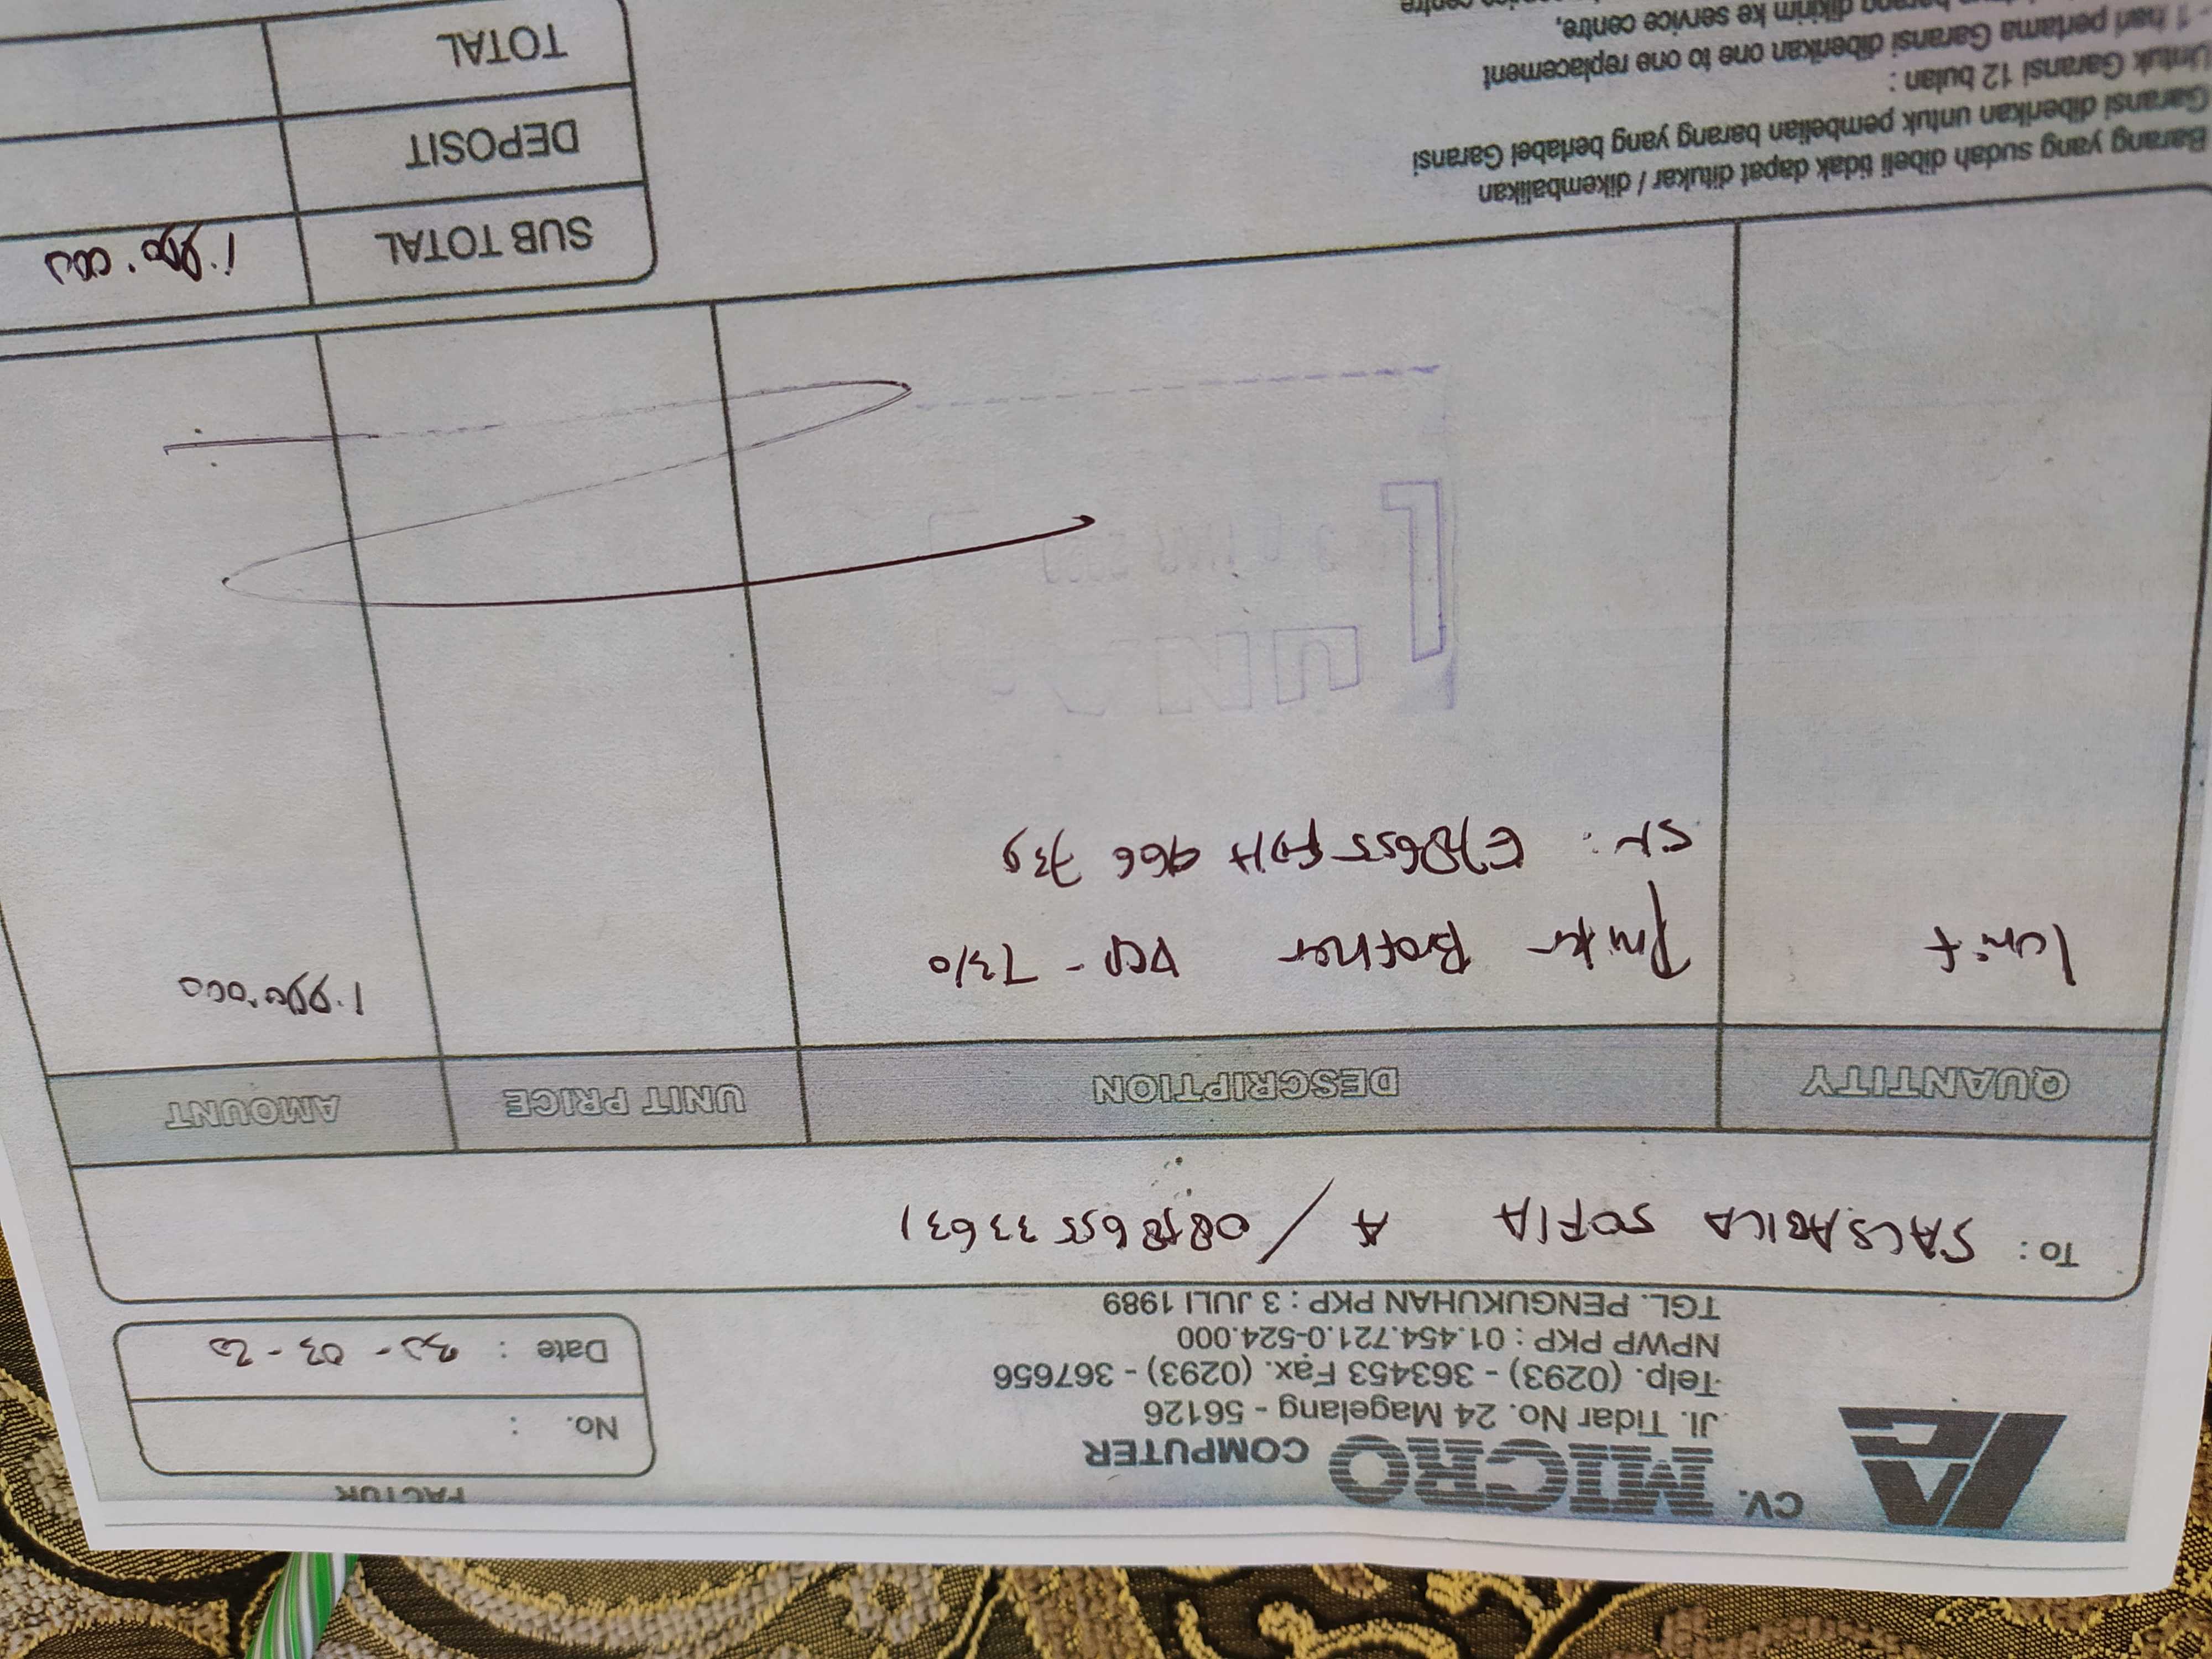 FACTUR
CV. MICRO COMPUTER
Jl. Tidar No. 24 Magelang - 56126
Telp. (0293) - 363453 Fax. (0293) - 367656
NPWP PKP : 01.454.721.0-524.000
TGL. PENGUKUHAN PKP : 3 JULI 1989
No. :
Date : 30 - 03 - 20
To : SALSABILA SOFIA A /
QUANTITY DESCRIPTION UNIT PRICE AMOUNT
1 unit Printer Brother DCP - T310
SN :
LUNAS
SUB TOTAL
DEPOSIT
TOTAL
Barang yang sudah dibeli tidak dapat ditukar / dikembalikan
Garansi diberikan untuk pembelian barang yang berlabel Garansi
Untuk Garansi 12 bulan :
- 1 hari pertama Garansi diberikan one to one replacement
barang dikirim ke service centre,
service centre